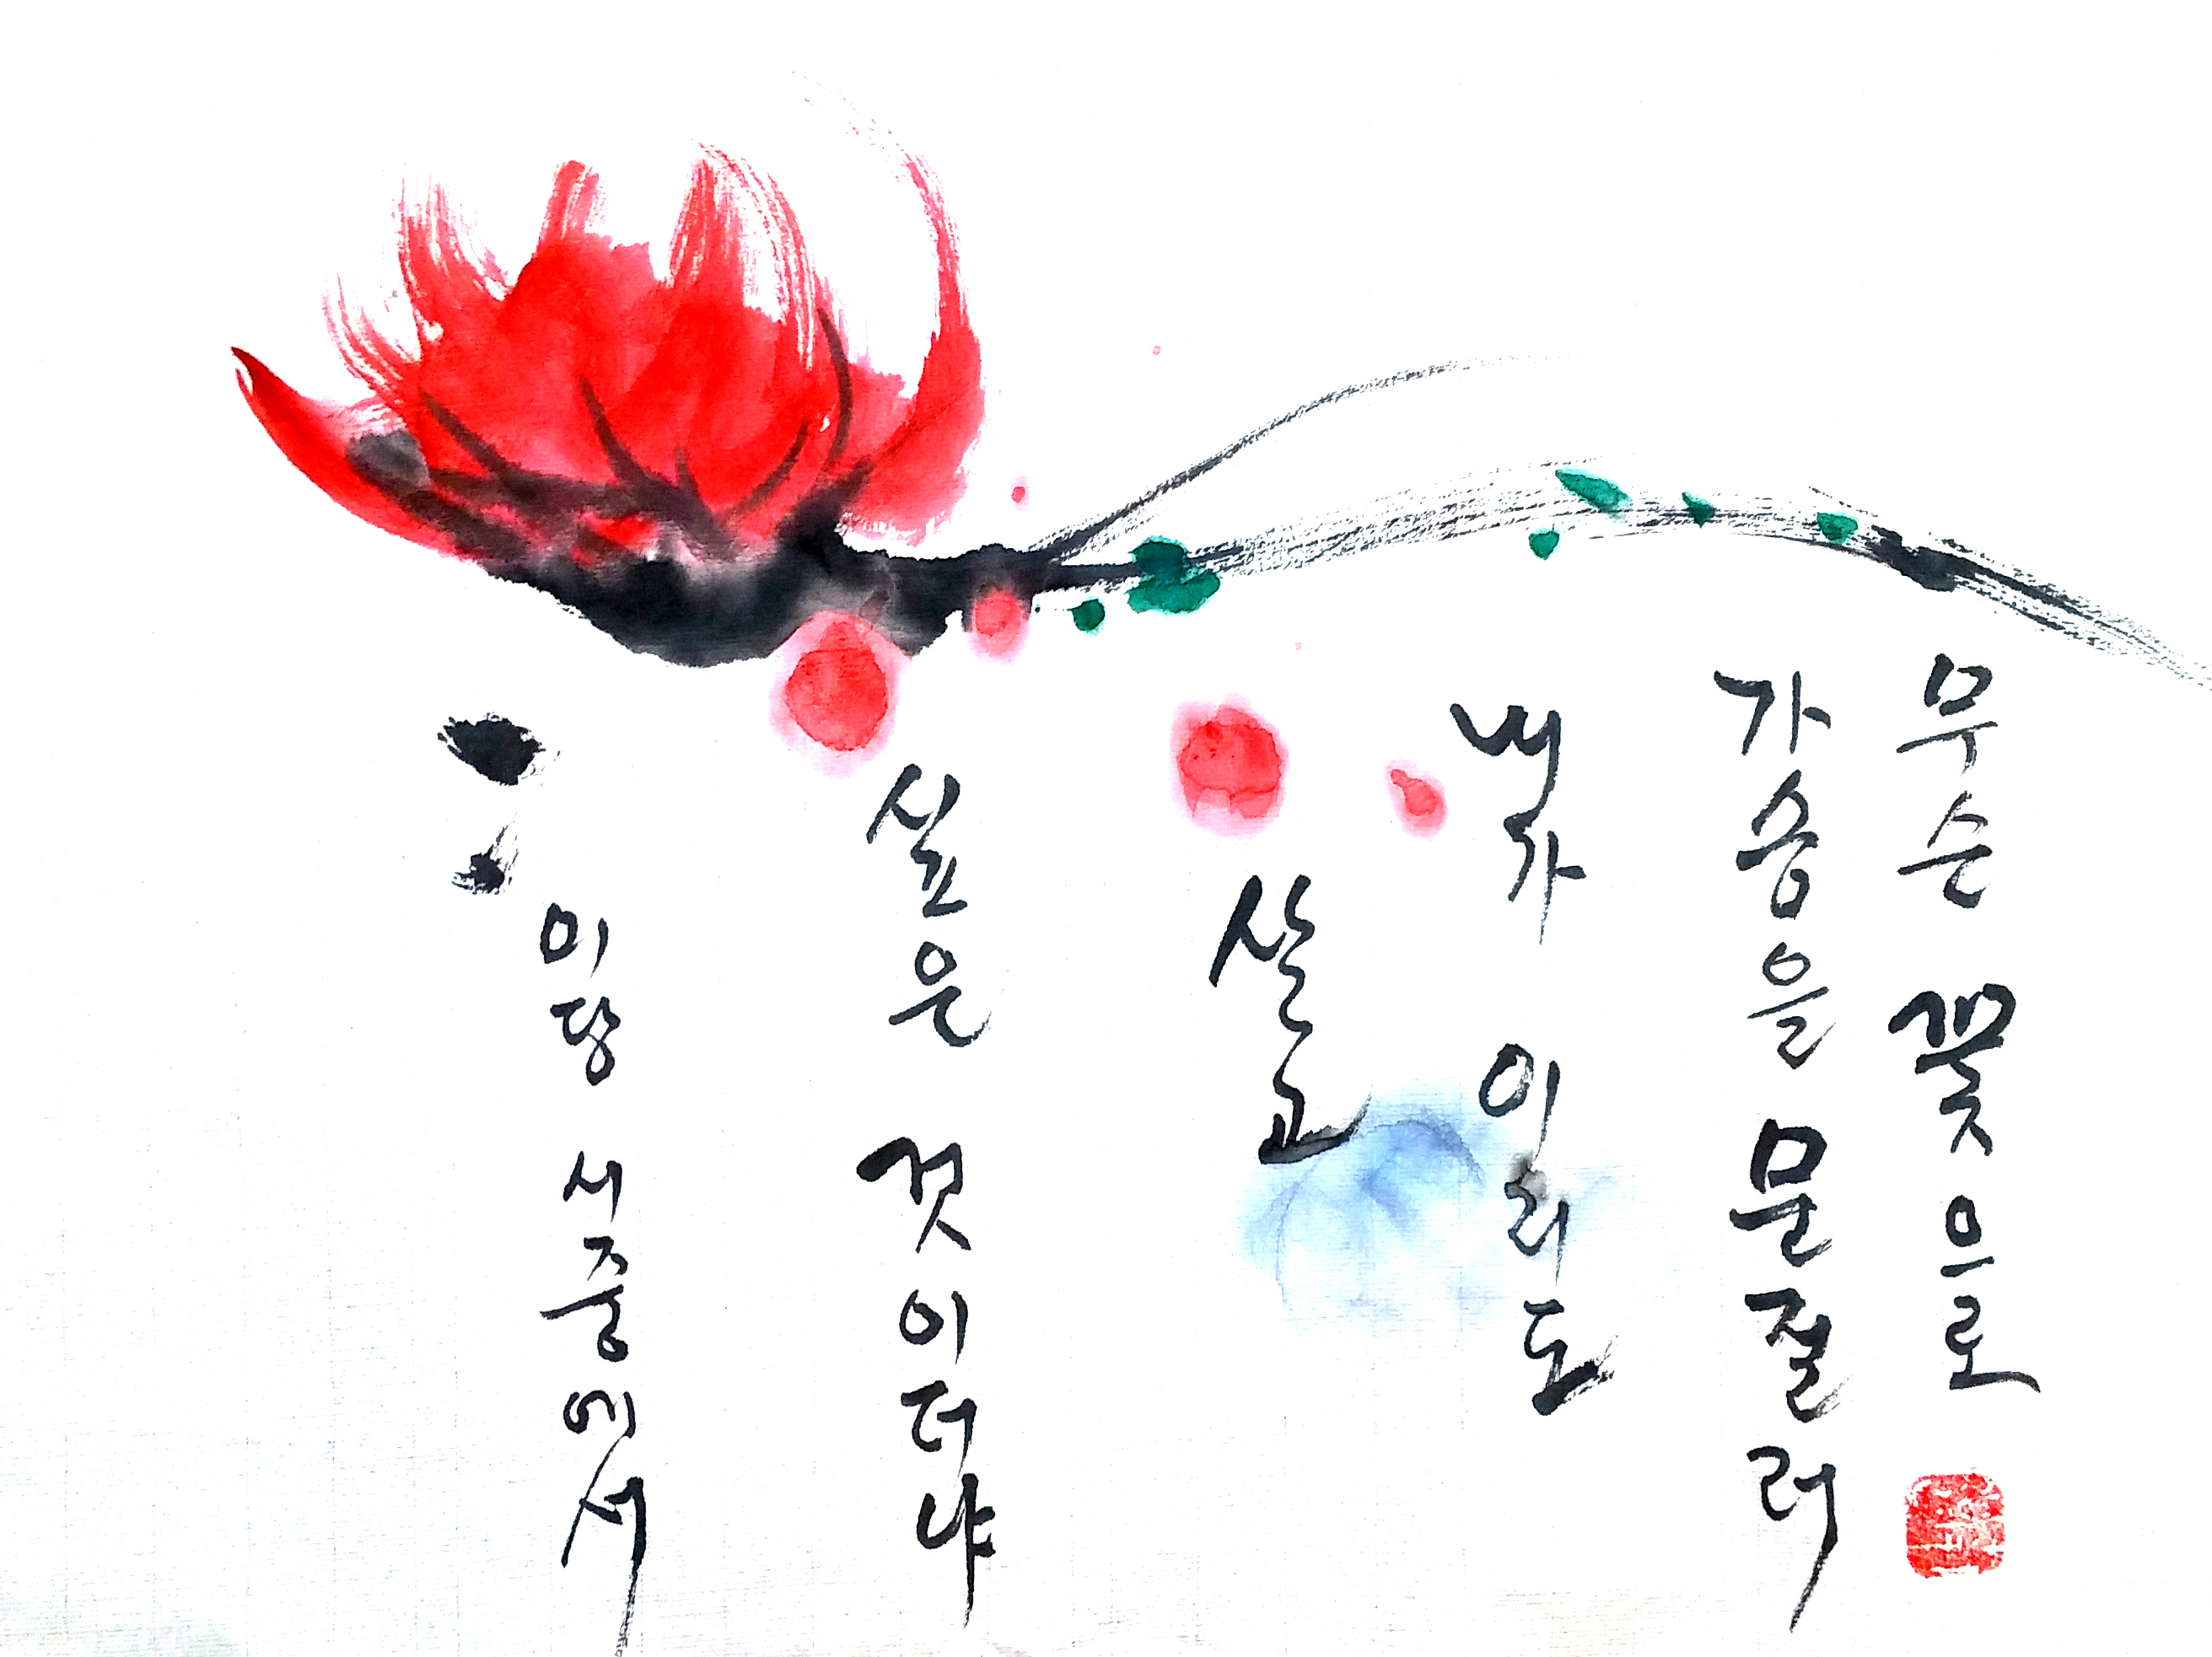 무슨 꽃으로
가슴을 문질러
내가 이리도
살고
싶은 것이더냐
미당 시중에서